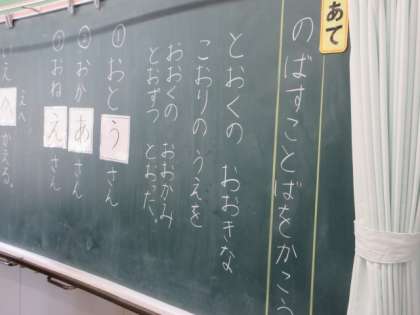 あて
のばすことばをかこう
とおくの おおきな
こおりの うえを
おおくの おおかみ
とおずつ とおった。
①おとうさん
②おかあさん
③おねえさん
えへ
いえへかえる。